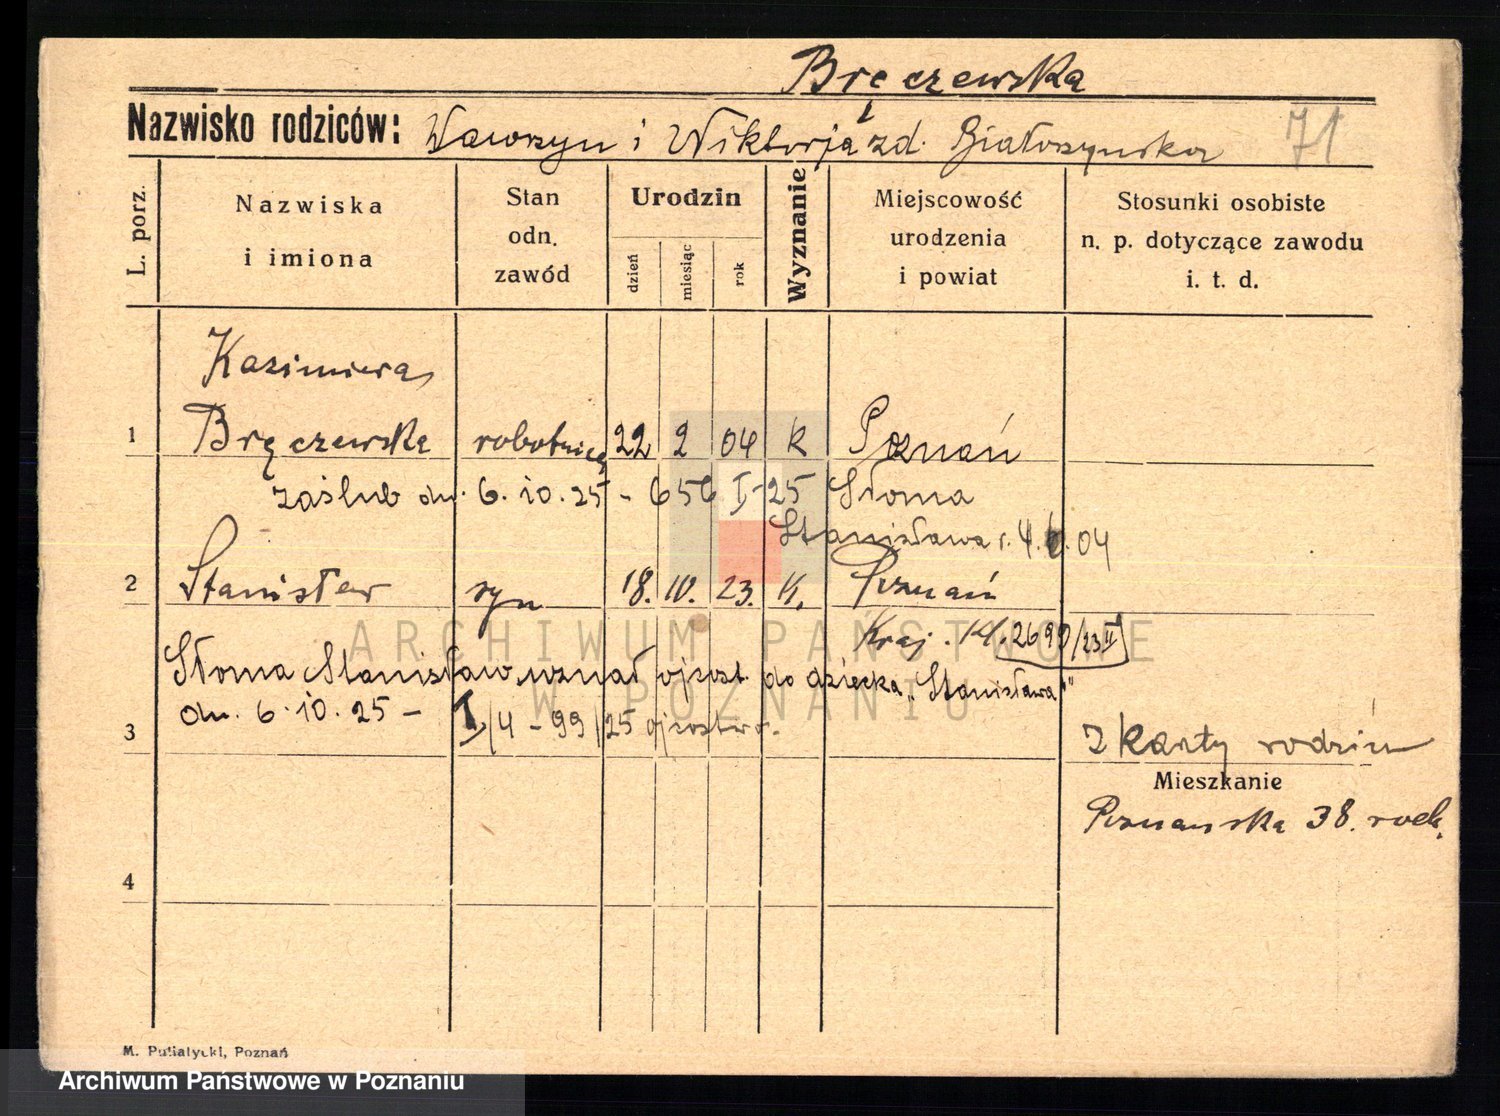 Bręczewska
Nazwisko rodziców: Wawrzyn i Wiktorja zd. Białoszynska 71
L. porz.
Nazwiska
i imiona
Stan
odn.
zawód
Urodzin
dzień
miesiąc
rok
Wyznanie
Miejscowość
urodzenia
i powiat
Stosunki osobiste
n. p. dotyczące zawodu
i. t. d.
Kazimiera
1 Bręczewska robotnica 22 2 04 K Poznań
zaślub dn. 6.10.25 - 656 I-25 Słoma
Stanisława r. 4. 04
2 Stanisław syn 18. 10. 23. K. Poznań
Kraj. 2690/23 II
Słoma Stanisław uznał ojcost. do dziecka "Stanisława"
dn. 6.10.25 - I/4 - 99/25 ojcostwo.
3
Z karty rodzin
Mieszkanie
Poznanska 38. rodz.
4
M. Putiatycki, Poznań
ARCHIWUM PAŃSTWOWE
W POZNANIU
Archiwum Państwowe w Poznaniu